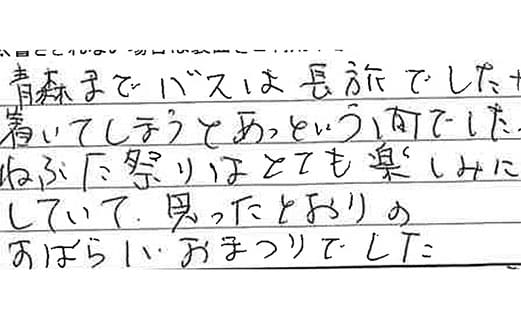 青森までバスは長旅でした
着いてしまうとあっという間でした
ねぶた祭りはとても楽しみに
していて、思ったとおりの
すばらしいおまつりでした